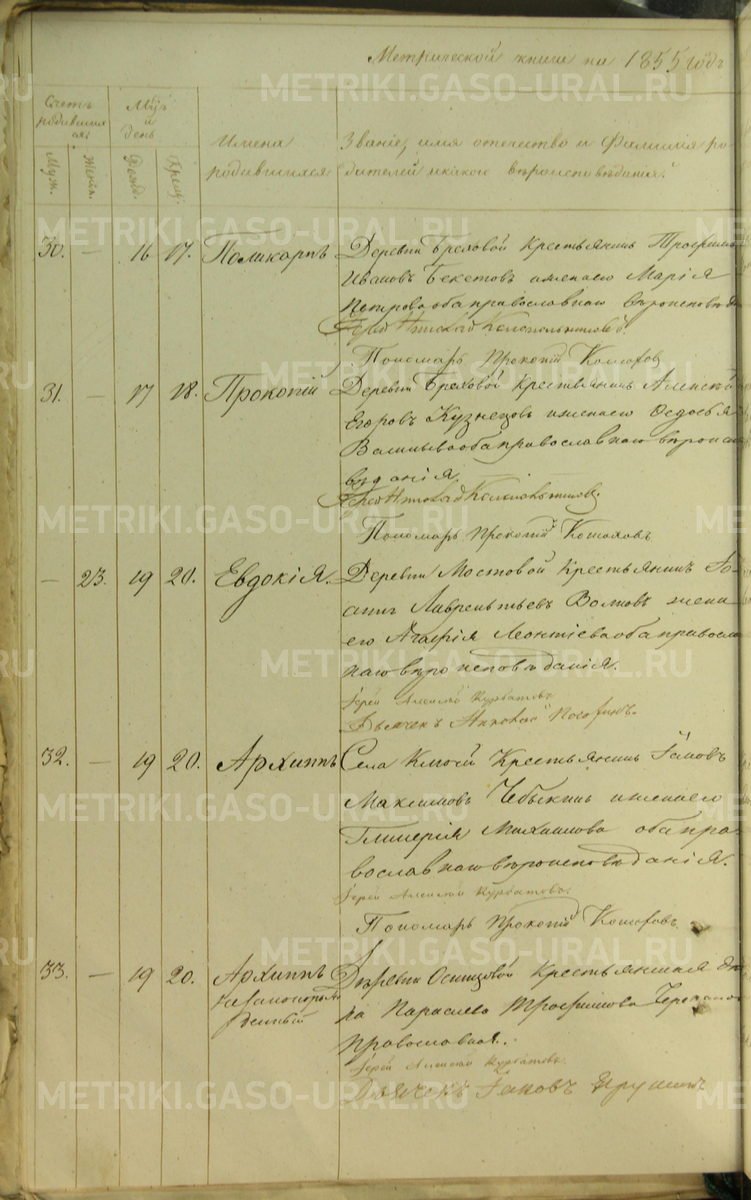 Метрической книги на 1855 годъ
Счетъ родившихся
Муж.
Женъ.
Мѣс. и день
Рожд.
Крещ.
Имена родившихся
Званіе, имя отчество и Фамилія ро-
дителей и какого вѣроисповѣданія.
30. — 16 17. Поликарпъ
Деревни Бреховой Крестьянинъ Трофимъ
Ивановъ Бекетовъ и жена его Марія
Петрова оба православнаго вѣроисповѣда
Пономарь Прокопій
31. — 17 18. Прокопій
Деревни Бреховой Крестьянинъ Алексѣй
Егоровъ Кузнецовъ и жена его Ѳедосья
оба православнаго вѣроиспо
вѣданія.
Пономарь Прокопій
— 23. 19 20. Евдокія.
Деревни Мостовой Крестьянинъ
Лаврентьевъ Волковъ жена
его Леонтіева оба правосла
наго вѣроисповѣданія.
Іерей Алексѣй Курбатовъ
Дьячекъ
32. — 19 20. Архиппъ
Села Ключей Крестьянинъ Іаковъ
Максимовъ Чебыкинъ и жена его
Гликерія Михаилова оба пра-
вославнаго вѣроисповѣданія.
Іерей Алексѣй Курбатовъ.
Пономарь Прокопій
33. — 19 20. Архиппъ
Незаконорож
денный
Деревни Осинцовой Крестьянская дѣв
ка Параскева Трофимова
православная.
Іерей Алексѣй Курбатовъ.
Дьячекъ Іаковъ
METRIKI.GASO-URAL.RU